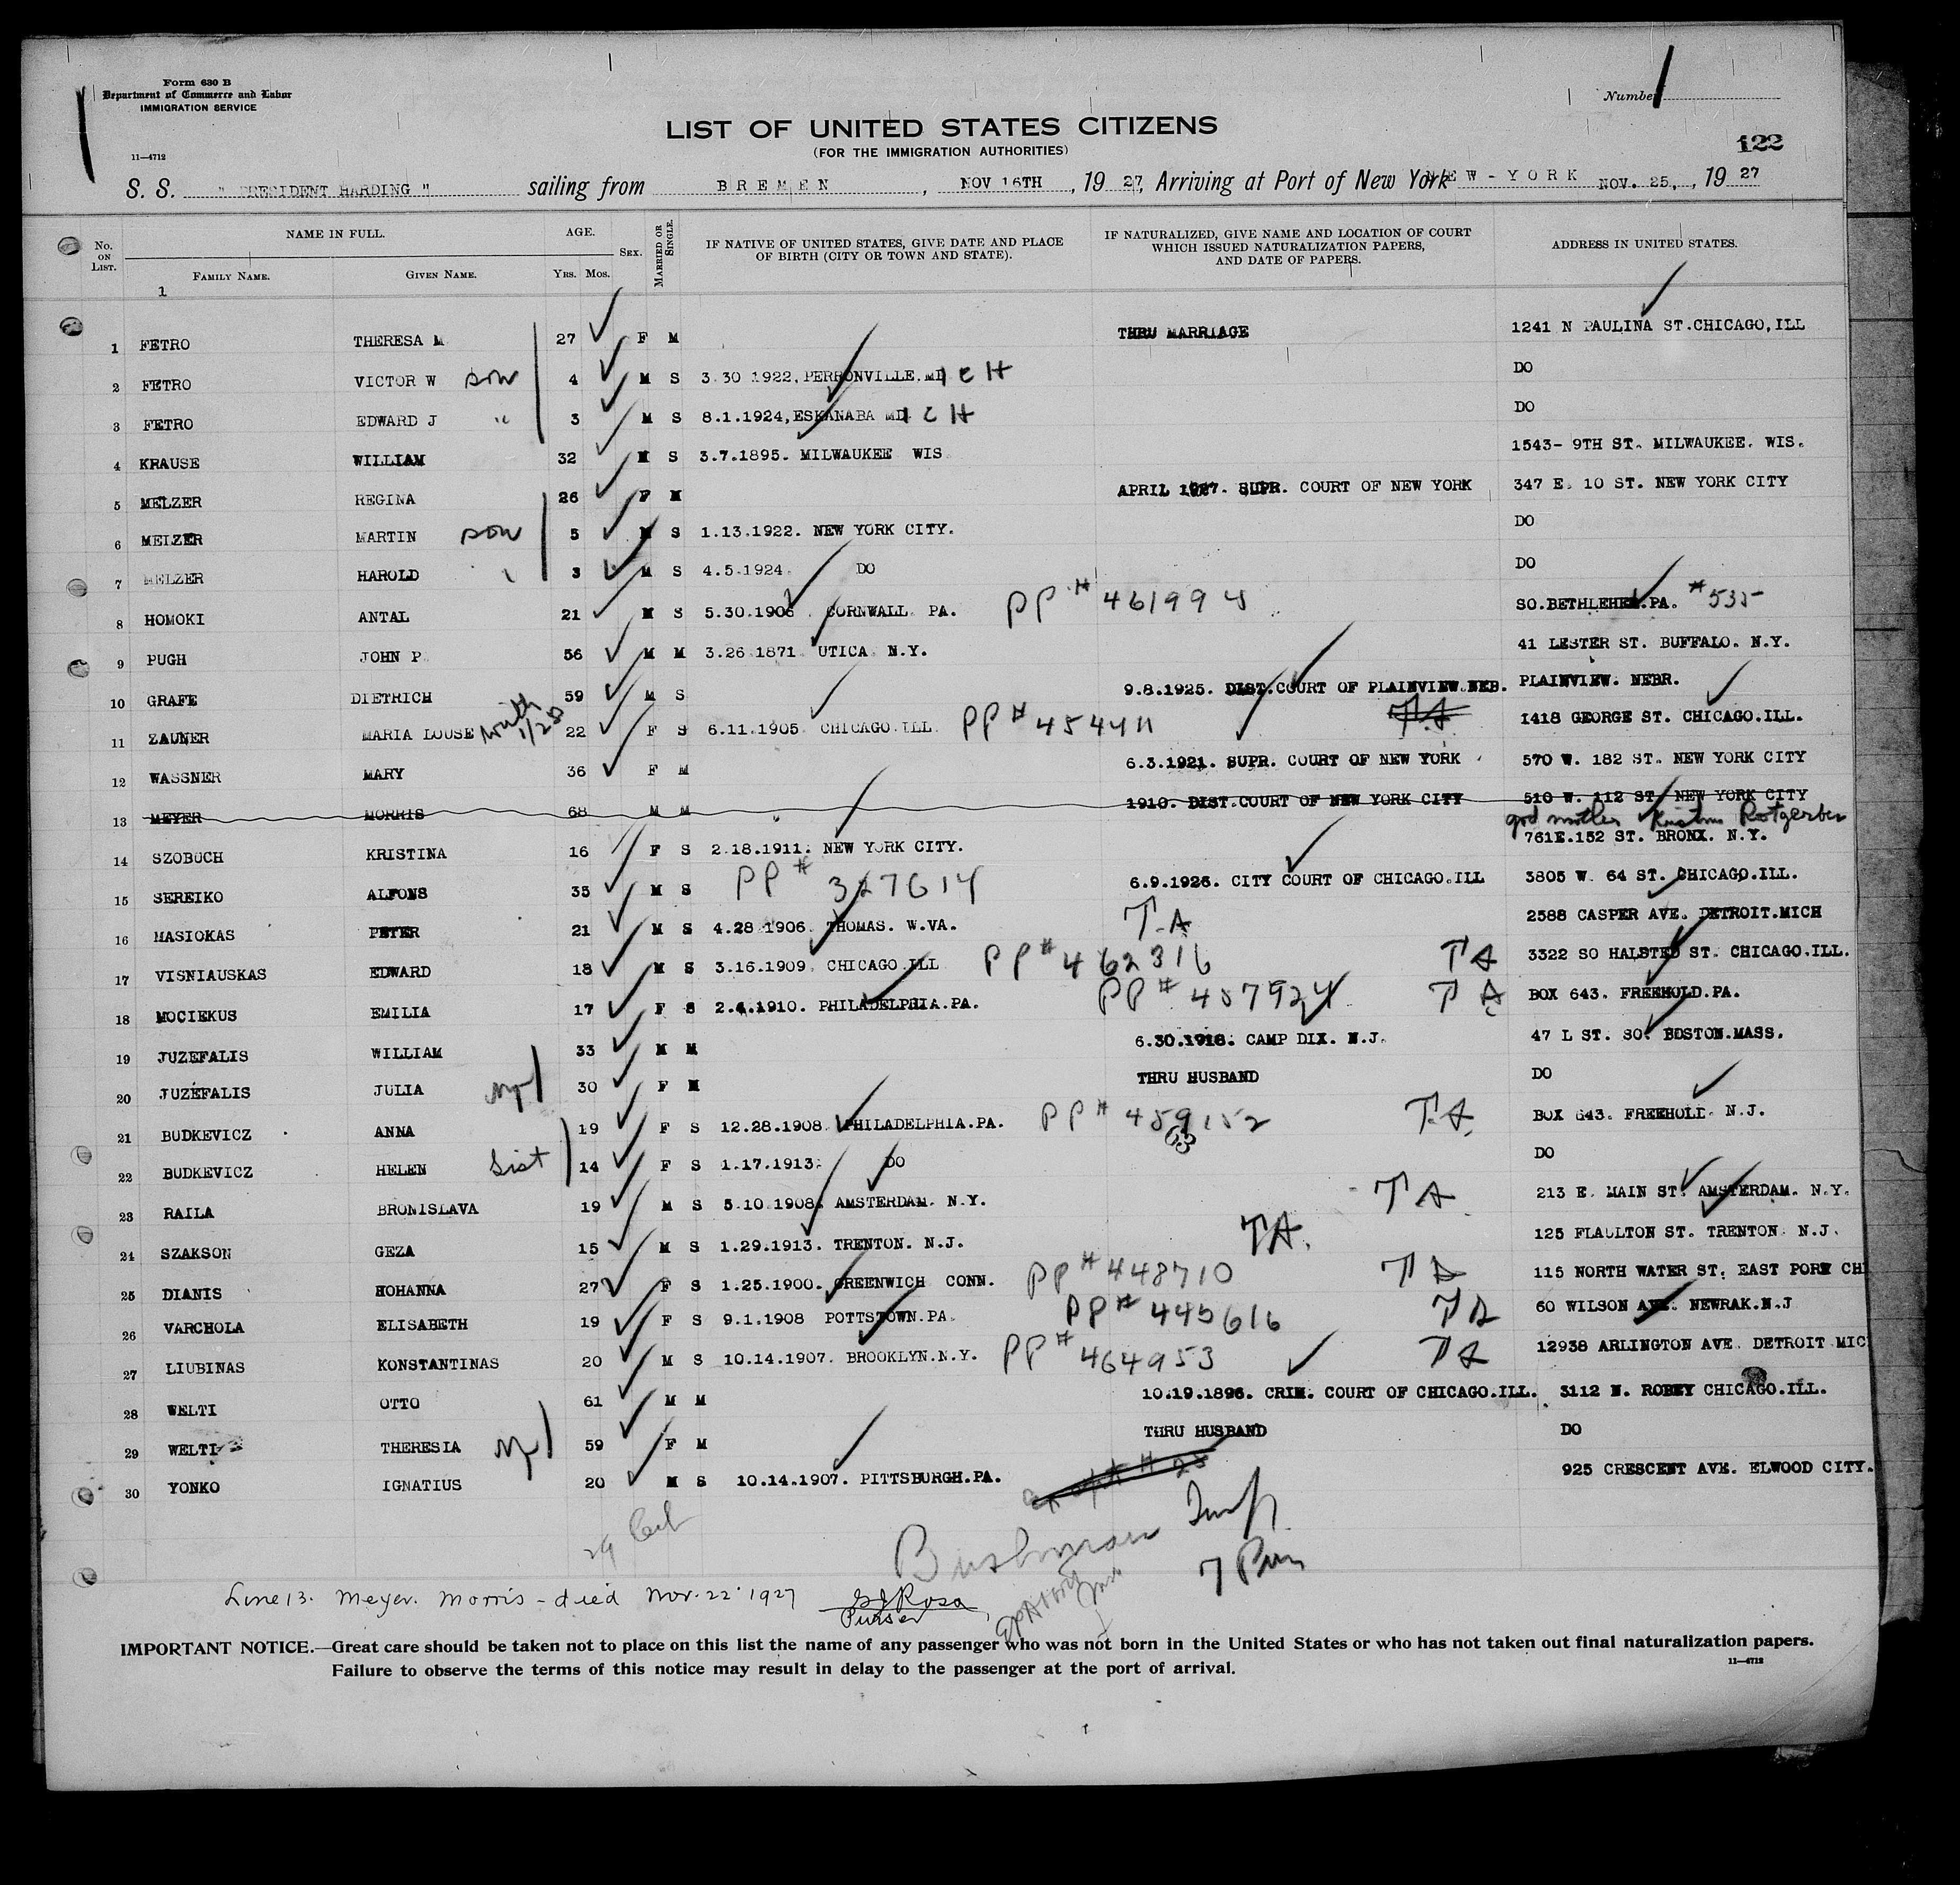 Form 630 B
Department of Commerce and Labor
IMMIGRATION SERVICE
Number
LIST OF UNITED STATES CITIZENS
(FOR THE IMMIGRATION AUTHORITIES)
122
11—4712
S. S. " PRESIDENT HARDING " sailing from BREMEN, NOV 16TH, 1927, Arriving at Port of New York NEW-YORK NOV. 25, , 1927
No. ON LIST.
NAME IN FULL.
FAMILY NAME.
GIVEN NAME.
AGE.
YRS. MOS.
SEX.
MARRIED OR SINGLE.
IF NATIVE OF UNITED STATES, GIVE DATE AND PLACE OF BIRTH (CITY OR TOWN AND STATE).
IF NATURALIZED, GIVE NAME AND LOCATION OF COURT WHICH ISSUED NATURALIZATION PAPERS, AND DATE OF PAPERS.
ADDRESS IN UNITED STATES.
1
1 FETRO THERESA M 27 F M THRU MARRIAGE 1241 N PAULINA ST.CHICAGO,ILL
2 FETRO VICTOR W son 4 M S 3.30 1922, PERRONVILLE.MD 1 C H DO
3 FETRO EDWARD J " 3 M S 8.1.1924, ESKANABA MD 1 C H DO
4 KRAUSE WILLIAM 32 M S 3.7.1895. MILWAUKEE WIS 1543- 9TH ST. MILWAUKEE. WIS.
5 MELZER REGINA 26 F M APRIL 1927. SUPR. COURT OF NEW YORK 347 E. 10 ST. NEW YORK CITY
6 MELZER MARTIN son 5 M S 1.13.1922. NEW YORK CITY. DO
7 MELZER HAROLD 3 M S 4.5.1924. DO DO
8 HOMOKI ANTAL 21 M S 5.30.1906 CORNWALL PA. PP # SO.BETHLEHEM.PA. #535
9 PUGH JOHN P. 56 M M 3.26 1871 UTICA N.Y. 41 LESTER ST. BUFFALO. N.Y.
10 GRAFE DIETRICH 59 M S 9.8.1925. DIST.COURT OF PLAINVIEW.NEB. PLAINVIEW. NEBR.
11 ZAUNER MARIA LOUSE with 1/28 22 F S 6.11.1905 CHICAGO.ILL PP # 454411 TA 1418 GEORGE ST. CHICAGO.ILL.
12 WASSNER MARY 36 F M 6.3.1921. SUPR. COURT OF NEW YORK 570 W. 182 ST. NEW YORK CITY
13 MEYER MORRIS 68 M M 1910. DIST.COURT OF NEW YORK CITY 510 W. 112 ST NEW YORK CITY
god mother Rotgerber
14 SZOBUCH KRISTINA 16 F S 2.18.1911. NEW YORK CITY. 761E.152 ST. BRONX. N.Y.
15 SEREIKO ALFONS 35 M S PP # 327614 6.9.1926. CITY COURT OF CHICAGO.ILL 3805 W. 64 ST. CHICAGO.ILL.
16 MASIOKAS PETER 21 M S 4.28 1906. THOMAS. W.VA. T.A 2588 CASPER AVE. DETROIT.MICH
17 VISNIAUSKAS EDWARD 18 M S 3.16.1909. CHICAGO.ILL PP # 462316 TA 3322 SO HALSTED ST. CHICAGO.ILL.
18 MOCIEKUS EMILIA 17 F S 2.4.1910. PHILADELPHIA.PA. PP # 457924 TA BOX 643. FREEHOLD.PA.
19 JUZEFALIS WILLIAM 33 M M 6.30.1918. CAMP DIX. N.J. 47 L ST. SO. BOSTON.MASS.
20 JUZEFALIS JULIA 30 F M THRU HUSBAND DO
21 BUDKEVICZ ANNA 19 F S 12.28.1908. PHILADELPHIA.PA. PP # 459152 T.A. BOX 643. FREEHOLD. N.J.
63
22 BUDKEVICZ HELEN Sist 14 F S 1.17.1913. DO DO
23 RAILA BRONISLAVA 19 M S 5.10.1908. AMSTERDAM. N.Y. TA 213 E. MAIN ST. AMSTERDAM. N.Y.
24 SZAKSON GEZA 15 M S 1.29.1913. TRENTON. N.J. TA. 125 FLAULTON ST. TRENTON N.J.
25 DIANIS HOHANNA 27 F S 1.25.1900. GREENWICH CONN. PP # 448710 TA 115 NORTH WATER ST. EAST PORT CH
26 VARCHOLA ELISABETH 19 F S 9.1.1908 POTTSTOWN.PA. PP # 445616 TA 60 WILSON AVE. NEWRAK.N.J
27 LIUBINAS KONSTANTINAS 20 M S 10.14.1907. BROOKLYN.N.Y. PP # 464953 TA 12938 ARLINGTON AVE. DETROIT MIC
28 WELTI OTTO 61 M M 10.19.1896. CRIM. COURT OF CHICAGO.ILL. 3112 N. ROBEY CHICAGO.ILL.
29 WELTI THERESIA 59 F M THRU HUSBAND DO
30 YONKO IGNATIUS 20 M S 10.14.1907. PITTSBURGH.PA. 925 CRESCENT AVE. ELWOOD CITY.
Bushman
Line 13. Meyer. Morris - died Nov. 22 1927
Purser
IMPORTANT NOTICE.—Great care should be taken not to place on this list the name of any passenger who was not born in the United States or who has not taken out final naturalization papers.
Failure to observe the terms of this notice may result in delay to the passenger at the port of arrival.
11—4712